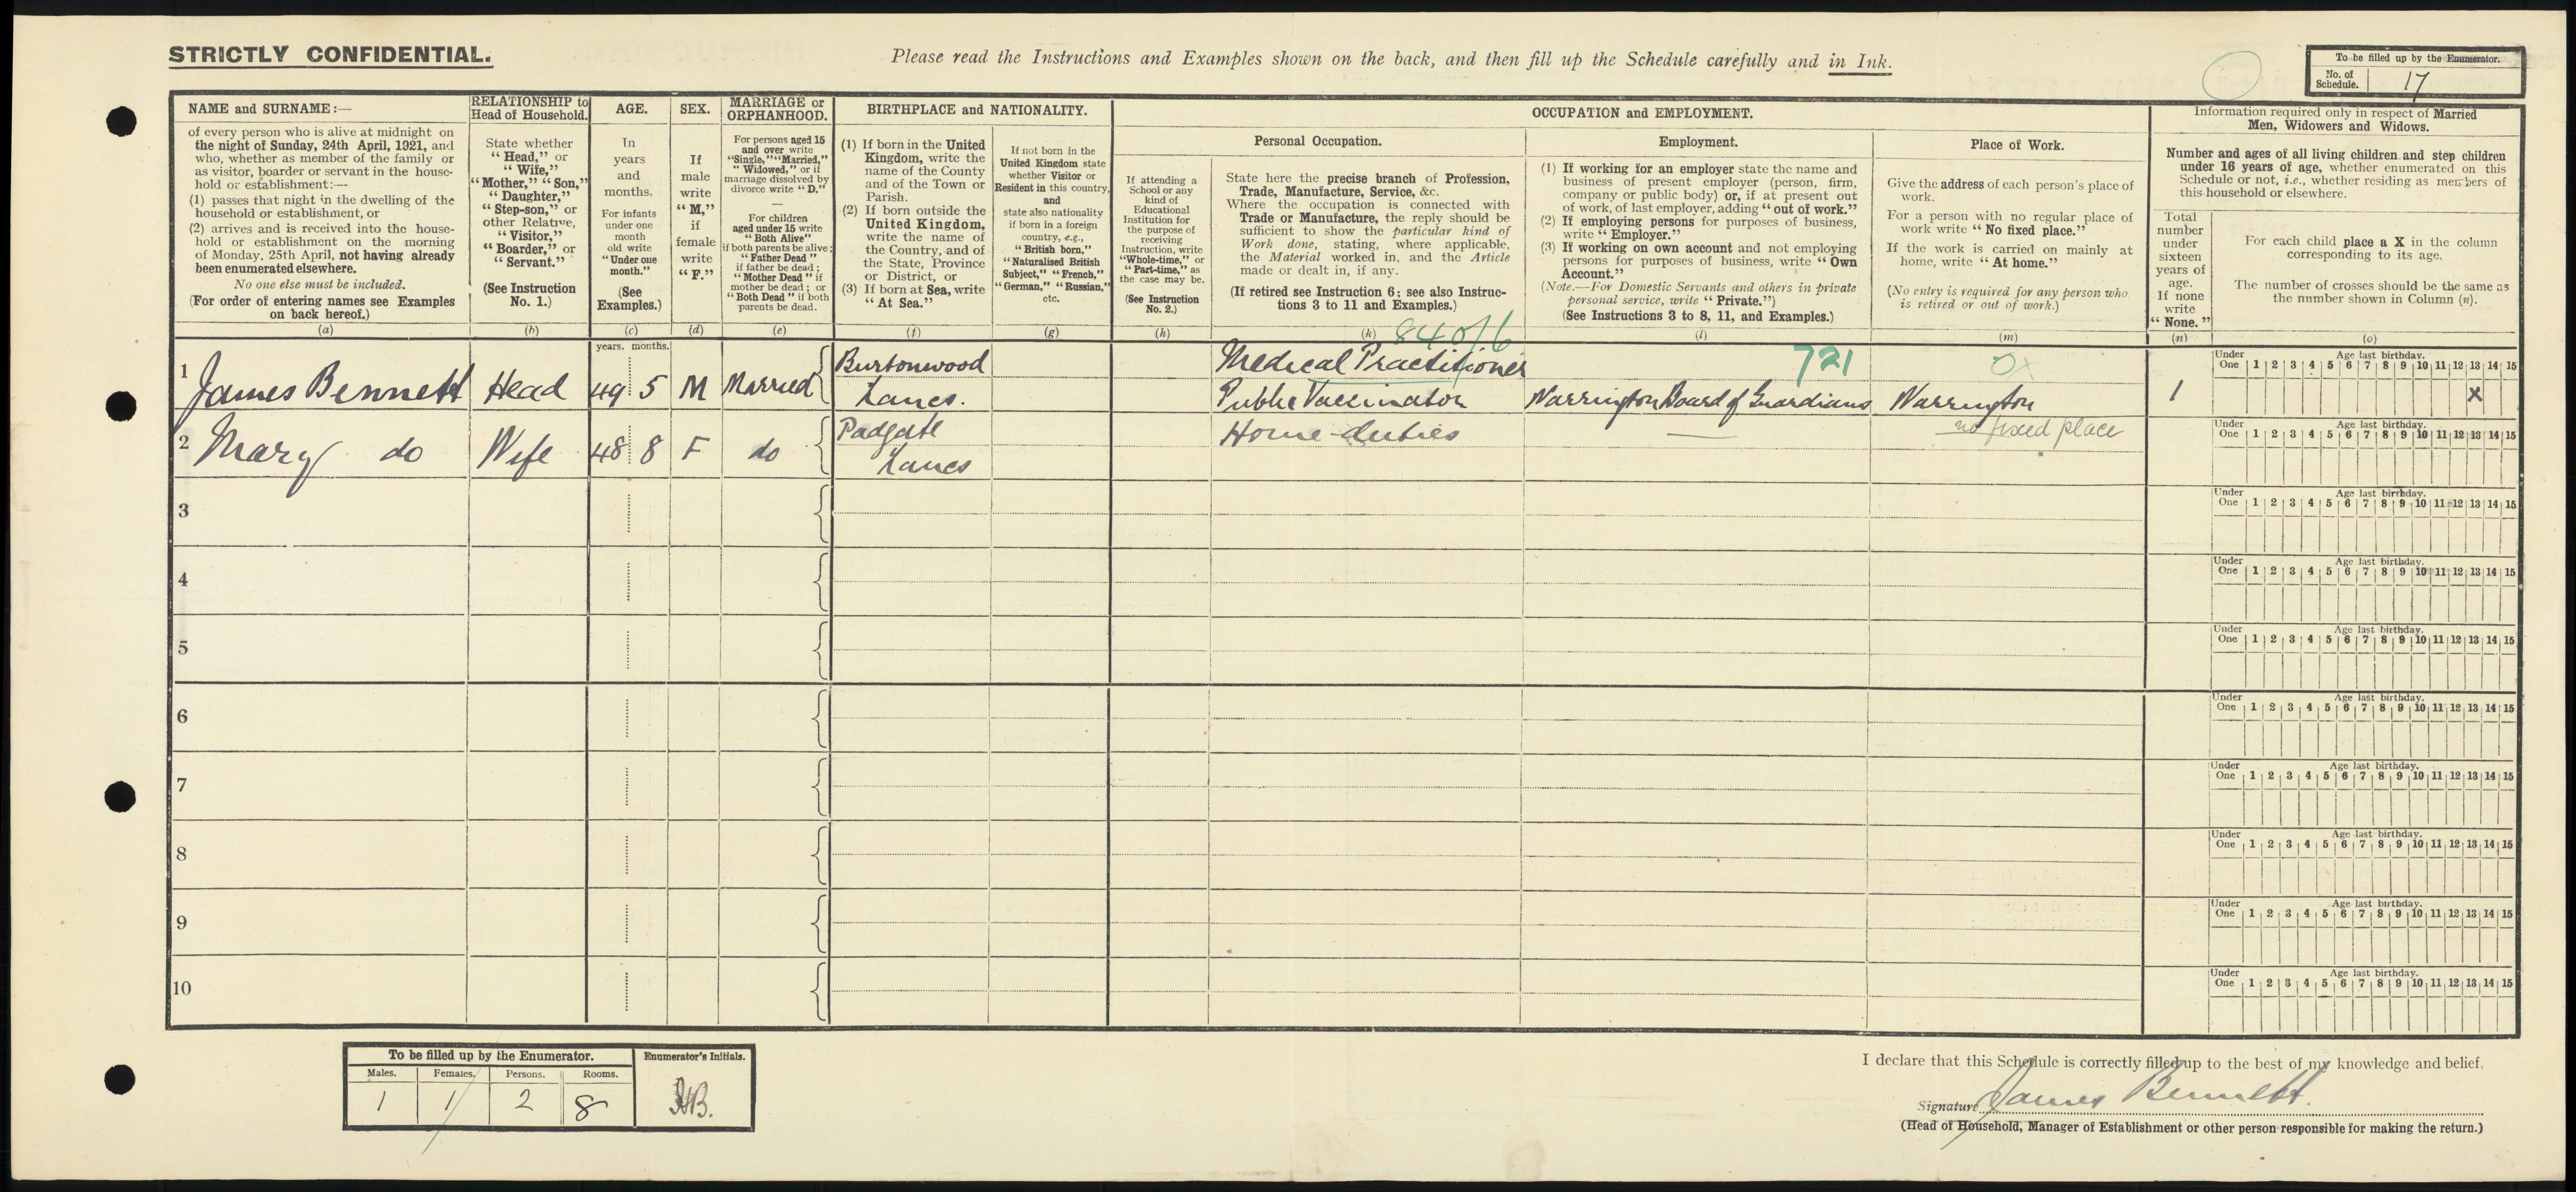 STRICTLY CONFIDENTIAL.
Please read the Instructions and Examples shown on the back, and then fill up the Schedule carefully and in Ink.
To be filled up by the Enumerator.
No. of Schedule. 17
NAME and SURNAME:—
of every person who is alive at midnight on
the night of Sunday, 24th April, 1921, and
who, whether as member of the family or
as visitor, boarder or servant in the house-
hold or establishment:—
(1) passes that night in the dwelling of the
household or establishment, or
(2) arrives and is received into the house-
hold or establishment on the morning
of Monday, 25th April, not having already
been enumerated elsewhere.
No one else must be included.
(For order of entering names see Examples
on back hereof.)
(a)
RELATIONSHIP to
Head of Household.
State whether
"Head," or
"Wife,"
"Mother," "Son,"
"Daughter,"
"Step-son," or
other Relative,
"Visitor,"
"Boarder," or
"Servant."
(See Instruction
No. 1.)
(b)
AGE.
In
years
and
months.
For infants
under one
month
old write
"Under one
month."
(See
Examples.)
(c)
SEX.
If
male
write
"M,"
if
female
write
"F."
(d)
MARRIAGE or
ORPHANHOOD.
For persons aged 15
and over write
"Single," "Married,"
"Widowed," or if
marriage dissolved by
divorce write "D."
—
For children
aged under 15 write
"Both Alive"
if both parents be alive;
"Father Dead"
if father be dead;
"Mother Dead" if
mother be dead; or
"Both Dead" if both
parents be dead.
(e)
BIRTHPLACE and NATIONALITY.
(1) If born in the United
Kingdom, write the
name of the County
and of the Town or
Parish.
(2) If born outside the
United Kingdom,
write the name of
the Country, and of
the State, Province
or District, or
(3) If born at Sea, write
"At Sea."
(f)
If not born in the
United Kingdom state
whether Visitor or
Resident in this country,
and
state also nationality
if born in a foreign
country, e.g.,
"British born,"
"Naturalised British
Subject," "French,"
"German," "Russian,"
etc.
(g)
OCCUPATION and EMPLOYMENT.
Personal Occupation.
If attending a
School or any
kind of
Educational
Institution for
the purpose of
receiving
Instruction, write
"Whole-time," or
"Part-time," as
the case may be.
(See Instruction
No. 2.)
(h)
State here the precise branch of Profession,
Trade, Manufacture, Service, &c.
Where the occupation is connected with
Trade or Manufacture, the reply should be
sufficient to show the particular kind of
Work done, stating, where applicable,
the Material worked in, and the Article
made or dealt in, if any.
(If retired see Instruction 6; see also Instruc-
tions 3 to 11 and Examples.)
(k)
Employment.
(1) If working for an employer state the name and
business of present employer (person, firm,
company or public body) or, if at present out
of work, of last employer, adding "out of work."
(2) If employing persons for purposes of business,
write "Employer."
(3) If working on own account and not employing
persons for purposes of business, write "Own
Account."
(Note.—For Domestic Servants and others in private
personal service, write "Private.")
(See Instructions 3 to 8, 11, and Examples.)
(l)
Place of Work.
Give the address of each person's place of
work.
For a person with no regular place of
work write "No fixed place."
If the work is carried on mainly at
home, write "At home."
(No entry is required for any person who
is retired or out of work.)
(m)
Information required only in respect of Married
Men, Widowers and Widows.
Number and ages of all living children and step children
under 16 years of age, whether enumerated on this
Schedule or not, i.e., whether residing as members of
this household or elsewhere.
Total
number
under
sixteen
years of
age.
If none
write
"None."
(n)
For each child place a X in the column
corresponding to its age.
The number of crosses should be the same as
the number shown in Column (n).
(o)
years. months.
840/6
721
0x
1 James Bennett Head 49 5 M Married Burtonwood Lancs. Medical Practitioner Public Vaccinator Warrington Board of Guardians Warrington 1
Under One Age last birthday. 1 2 3 4 5 6 7 8 9 10 11 12 13 14 15
X
2 Mary do Wife 48 8 F do Padgate Lancs Home duties — no fixed place
Under One Age last birthday. 1 2 3 4 5 6 7 8 9 10 11 12 13 14 15
3
Under One Age last birthday. 1 2 3 4 5 6 7 8 9 10 11 12 13 14 15
4
Under One Age last birthday. 1 2 3 4 5 6 7 8 9 10 11 12 13 14 15
5
Under One Age last birthday. 1 2 3 4 5 6 7 8 9 10 11 12 13 14 15
6
Under One Age last birthday. 1 2 3 4 5 6 7 8 9 10 11 12 13 14 15
7
Under One Age last birthday. 1 2 3 4 5 6 7 8 9 10 11 12 13 14 15
8
Under One Age last birthday. 1 2 3 4 5 6 7 8 9 10 11 12 13 14 15
9
Under One Age last birthday. 1 2 3 4 5 6 7 8 9 10 11 12 13 14 15
10
Under One Age last birthday. 1 2 3 4 5 6 7 8 9 10 11 12 13 14 15
To be filled up by the Enumerator.
Enumerator's Initials.
Males. Females. Persons. Rooms.
1 1 2 8
I declare that this Schedule is correctly filled up to the best of my knowledge and belief.
Signature James Bennett.
(Head of Household, Manager of Establishment or other person responsible for making the return.)